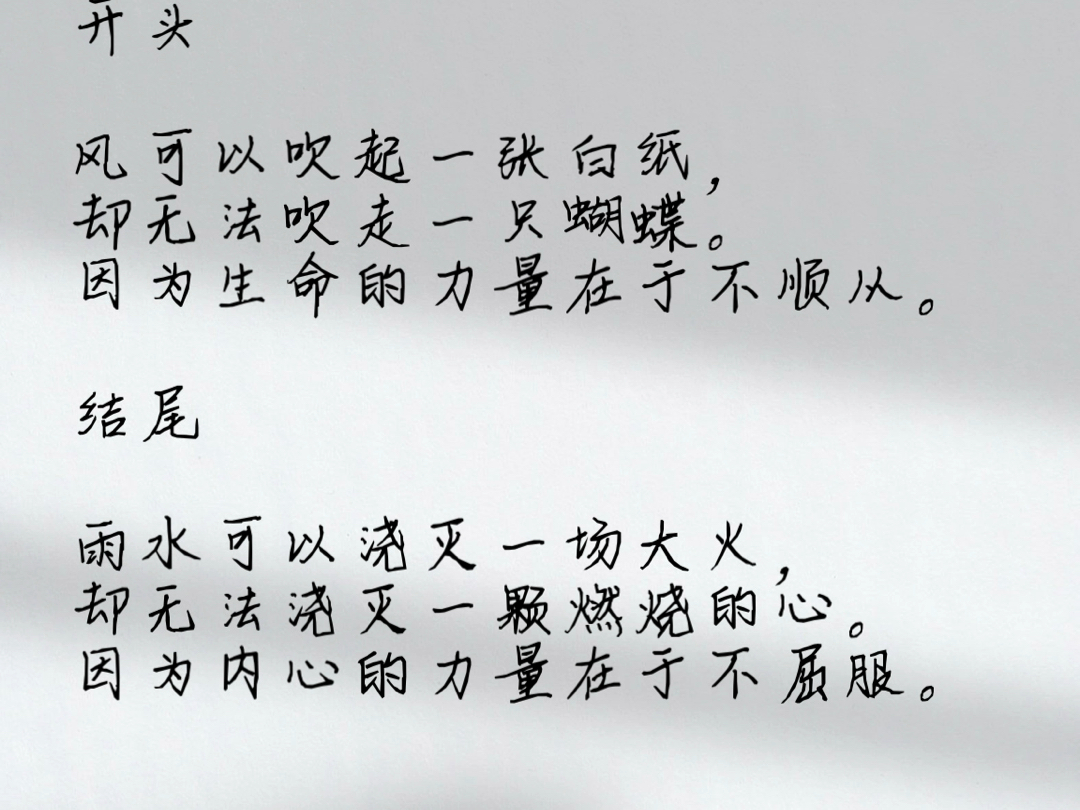 开头
风可以吹起一张白纸，
却无法吹走一只蝴蝶。
因为生命的力量在于不顺从。
结尾
雨水可以浇灭一场大火，
却无法浇灭一颗燃烧的心。
因为内心的力量在于不屈服。